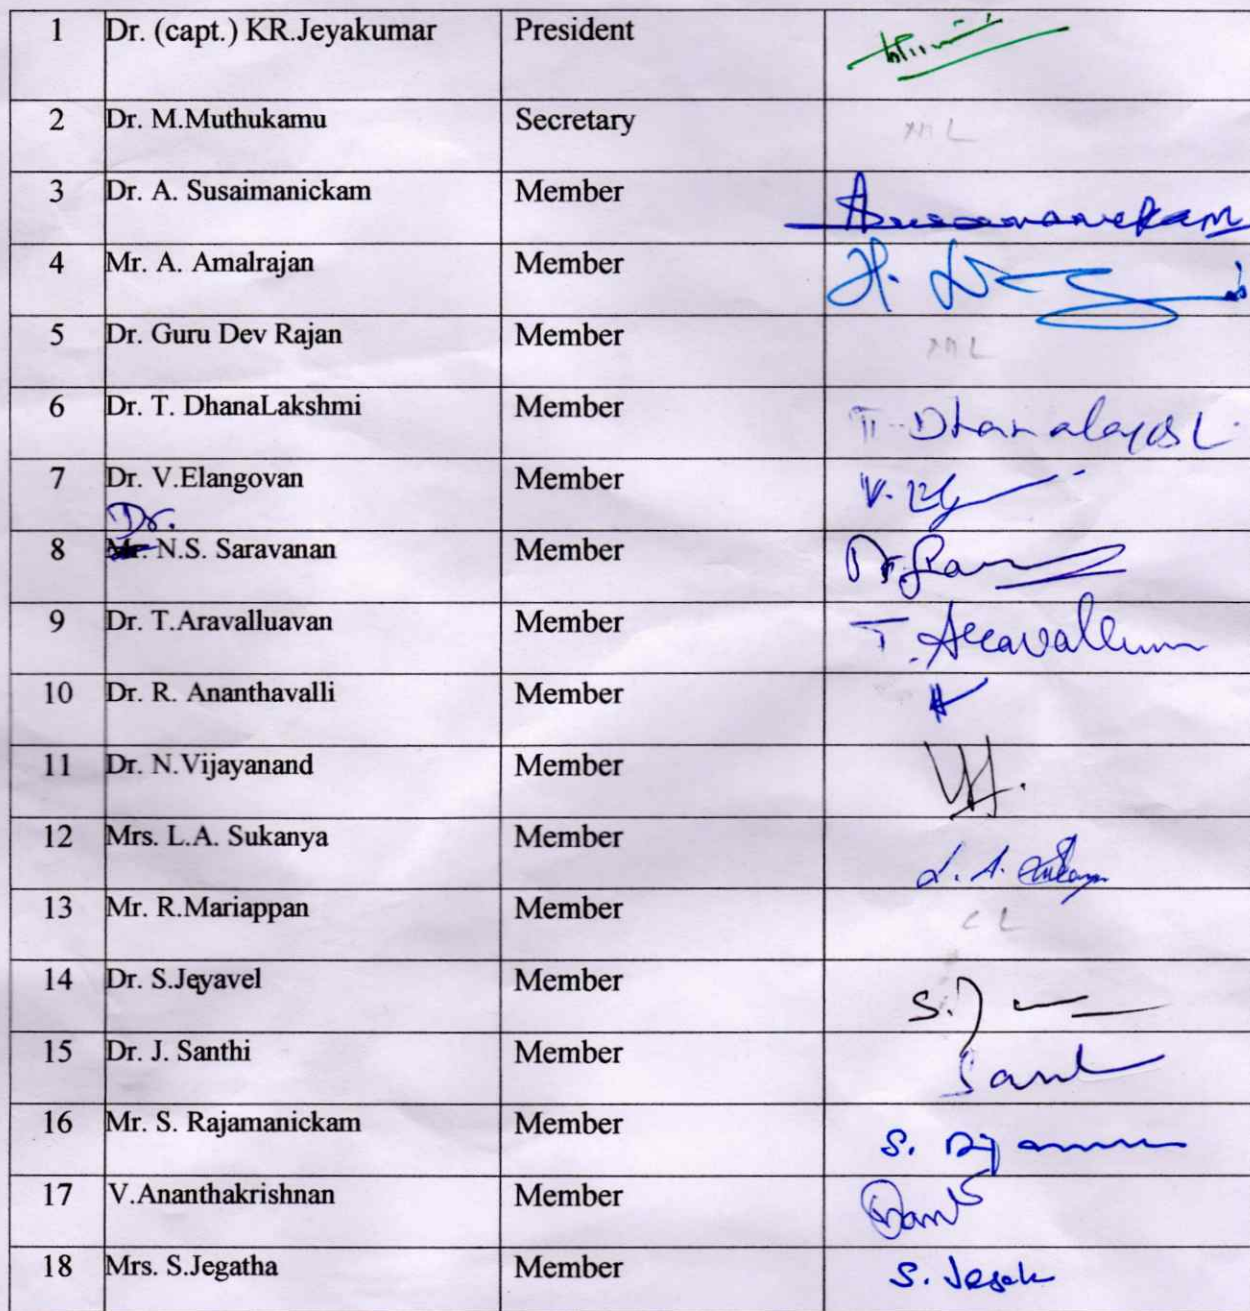 1 Dr. (capt.) KR.Jeyakumar President
2 Dr. M.Muthukamu Secretary ML
3 Dr. A. Susaimanickam Member Asusaimanickam
4 Mr. A. Amalrajan Member
5 Dr. Guru Dev Rajan Member ML
6 Dr. T. DhanaLakshmi Member
7 Dr. V.Elangovan Member
Dr.
8 Mr. N.S. Saravanan Member
9 Dr. T.Aravalluavan Member
10 Dr. R. Ananthavalli Member
11 Dr. N.Vijayanand Member
12 Mrs. L.A. Sukanya Member L. A. Sukanya
13 Mr. R.Mariappan Member CL
14 Dr. S.Jeyavel Member
15 Dr. J. Santhi Member
16 Mr. S. Rajamanickam Member
17 V.Ananthakrishnan Member
18 Mrs. S.Jegatha Member